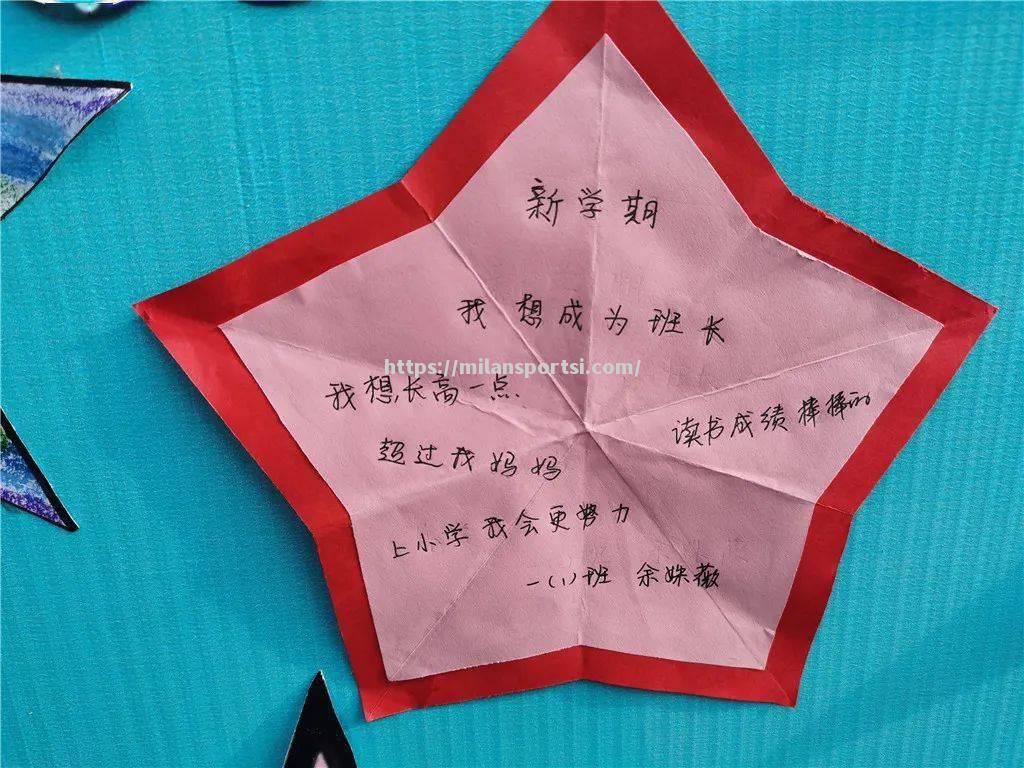 新学期
我想成为班长
https://milansportsi.com/
我想长高一点
读书成绩棒棒的
超过我妈妈
上小学我会更努力
一(1)班 余姝薇